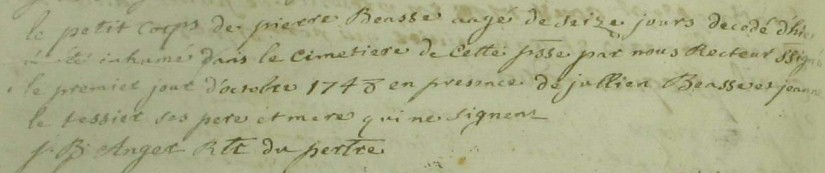 le petit corps de pierre Beasse aagé de seize jours decedé d'hier
a été inhumé dans le cimetiere de cette psse par nous Recteur ssigné
le premier jour d'octobre 1748 en presence de jullien Beasse et jeanne
le tessier ses pere et mere qui ne signent
j. B. Anger Rtr du pertre